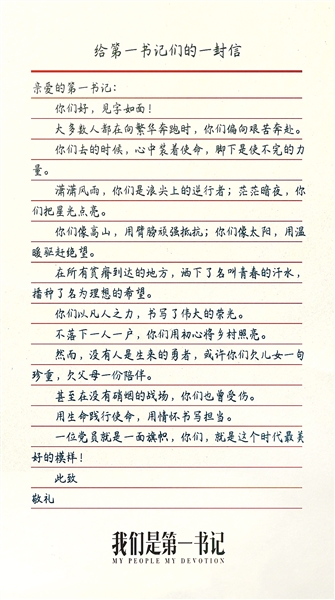 给第一书记们的一封信
亲爱的第一书记:
你们好,见字如面!
大多数人都在向繁华奔跑时,你们偏向艰苦奔赴。
你们去的时候,心中装着使命,脚下是使不完的力
量。
潇潇风雨,你们是浪尖上的逆行者;茫茫暗夜,你
们把星光点亮。
你们像高山,用臂膀顽强抵抗;你们像太阳,用温
暖驱赶绝望。
在所有贫瘠到达的地方,洒下了名叫青春的汗水,
播种了名为理想的希望。
你们以凡人之力,书写了伟大的荣光。
不落下一人一户,你们用初心将乡村照亮。
然而,没有人是生来的勇者,或许你们欠儿女一句
珍重,欠父母一份陪伴。
甚至在没有硝烟的战场,你们也曾受伤。
用生命践行使命,用情怀书写担当。
一位党员就是一面旗帜,你们,就是这个时代最美
好的模样!
此致
敬礼
我们是第一书记
MY PEOPLE MY DEVOTION